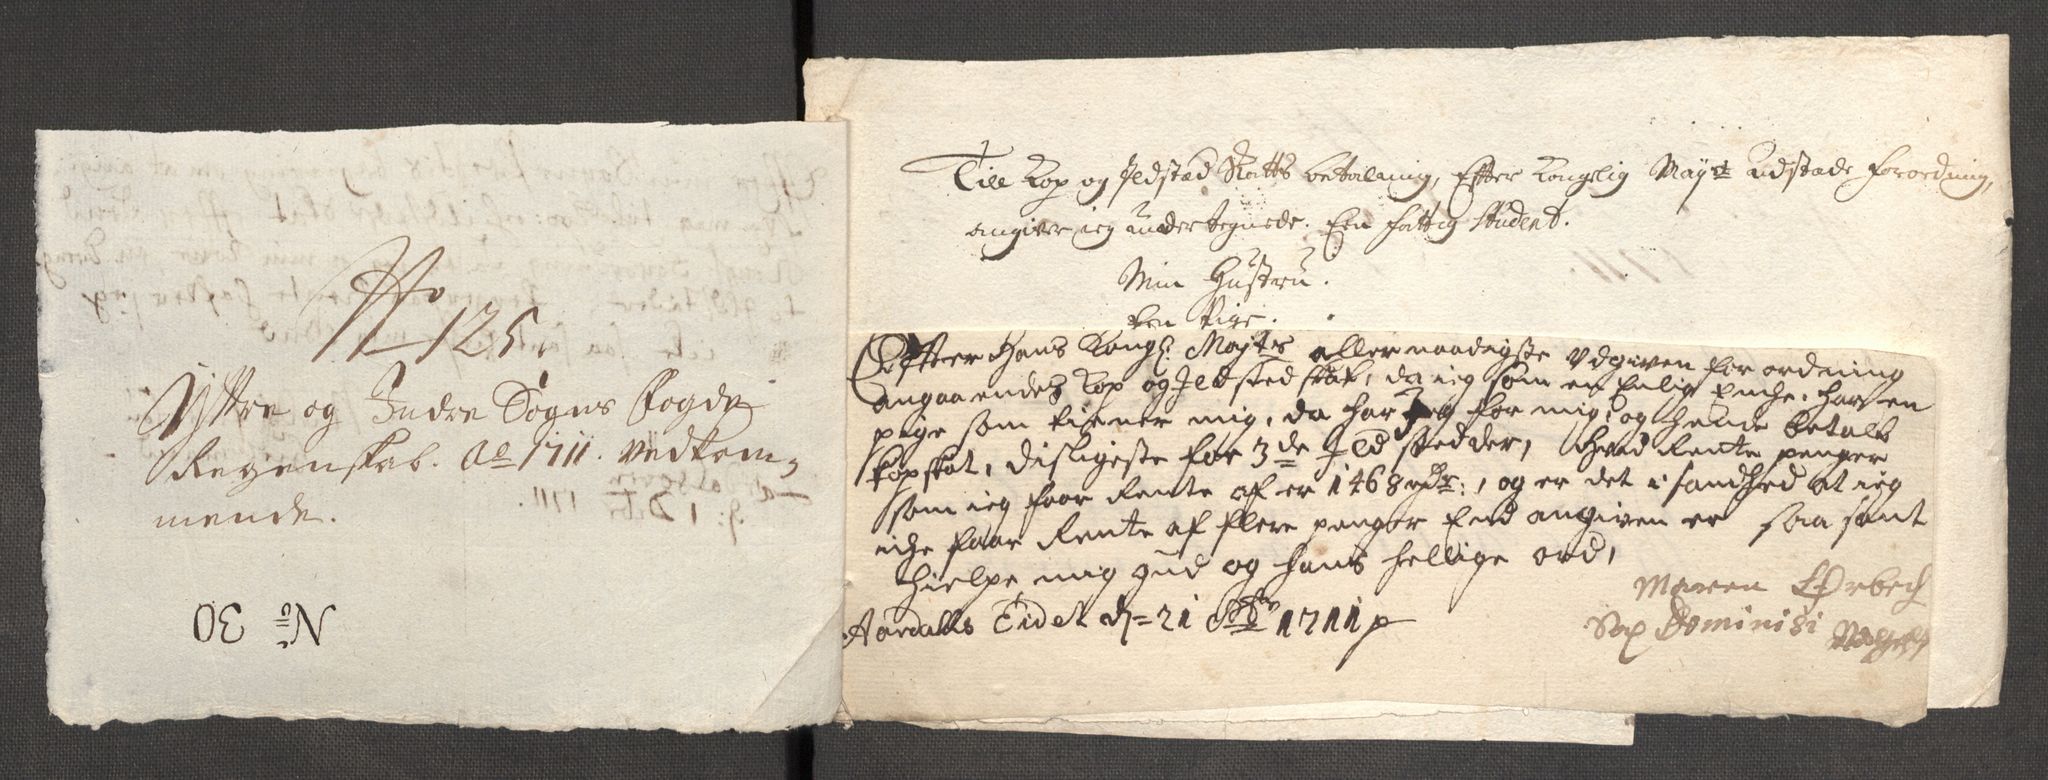 No
125.
Yttre og Indre Sogns Fogderi
Regenskab. Ao 1711. vedkom-
mende.
No 30
Till Kop og Jldstæd Skatts betalning, Effter Kongelig Mayts udstæde forordning,
angiver ieg undertegnede. Een fattig Student.
Min Hustru.
Een Pige.
Effter Hans Kongl. Maÿts allernaadigste Udgiven forordning
angaaendes Kop og Jldsted skat, da ieg som er Enlig Enche, har en
pige som tiener mig, da har Jeg for mig og hende betalt
kopskat, disligeste for 3de Jldstedder, hvad Rente penger
som ieg faar Rente af er 1468 rdr:, og er det i sandhed at ieg
iche faar Rente af flere penger End angiven er saa sant
hielpe mig gud og hans hellige ord,
Aardalls Eidet d= 21 1711
Maren
Sal Dominisi